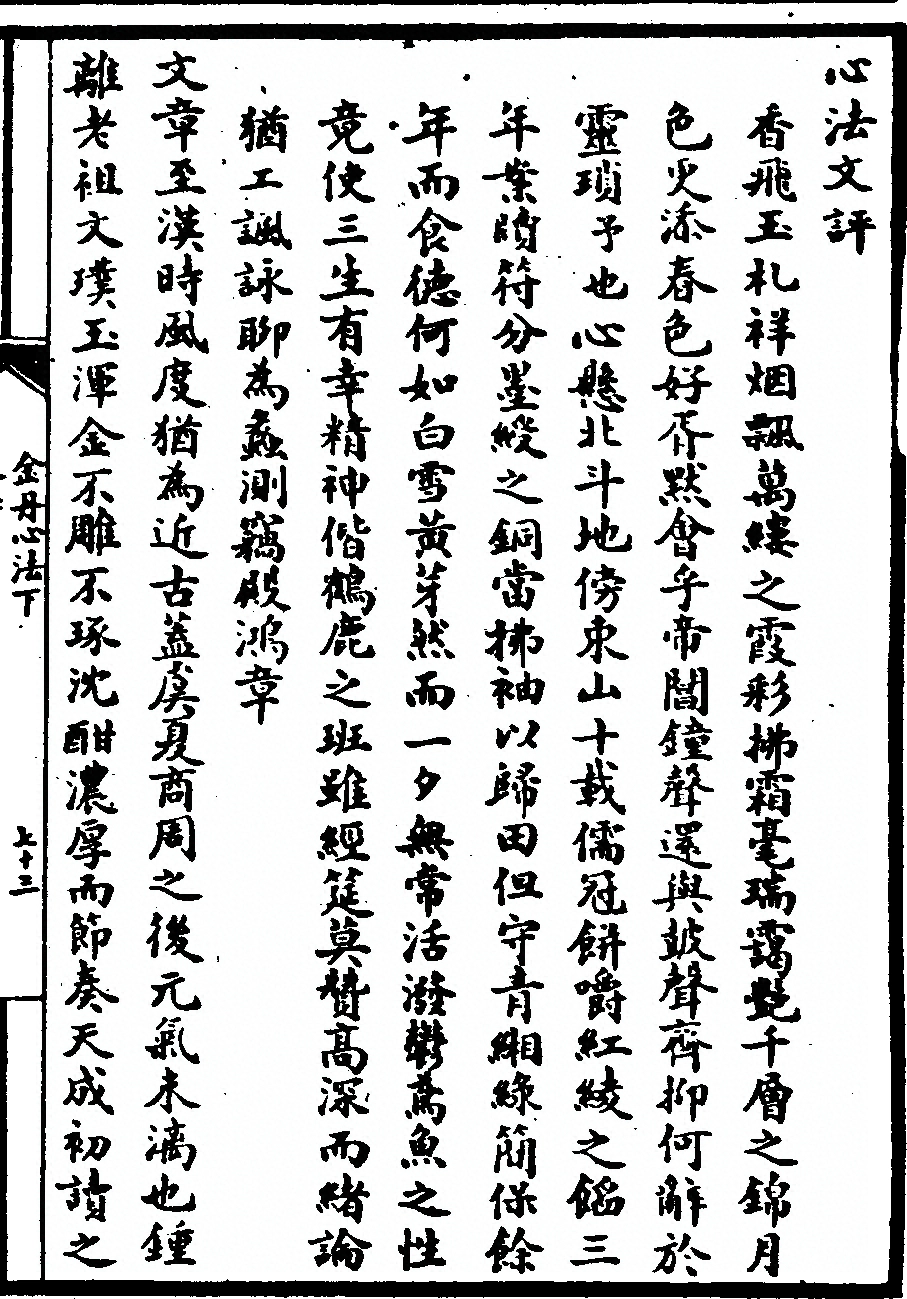 心法文評
香飛玉札祥烟飄萬縷之霞彩拂霜毫瑞靄艷千層之錦月
色火添春色好胥默會乎帝閽鐘聲還與鼓聲齊抑何辭於
靈瑣予也心懸北斗地傍東山十載儒冠餅嚼紅綾之餡三
年業牘符分墨綬之銅當拂袖以歸田但守青緗綠簡保餘
年而食德何如白雪黃芽然而一夕無常活潑鬱鳶魚之性
竟使三生有幸精神偕鶴鹿之班雖經筵莫贊高深而緒論
猶工諷詠聊為蠡測竊殿鴻章
文章至漢時風度猶為近古蓋虞夏商周之後元氣未漓也鍾
離老祖文璞玉渾金不雕不琢沈酣濃厚而節奏天成初讀之
金丹心法下
七十三